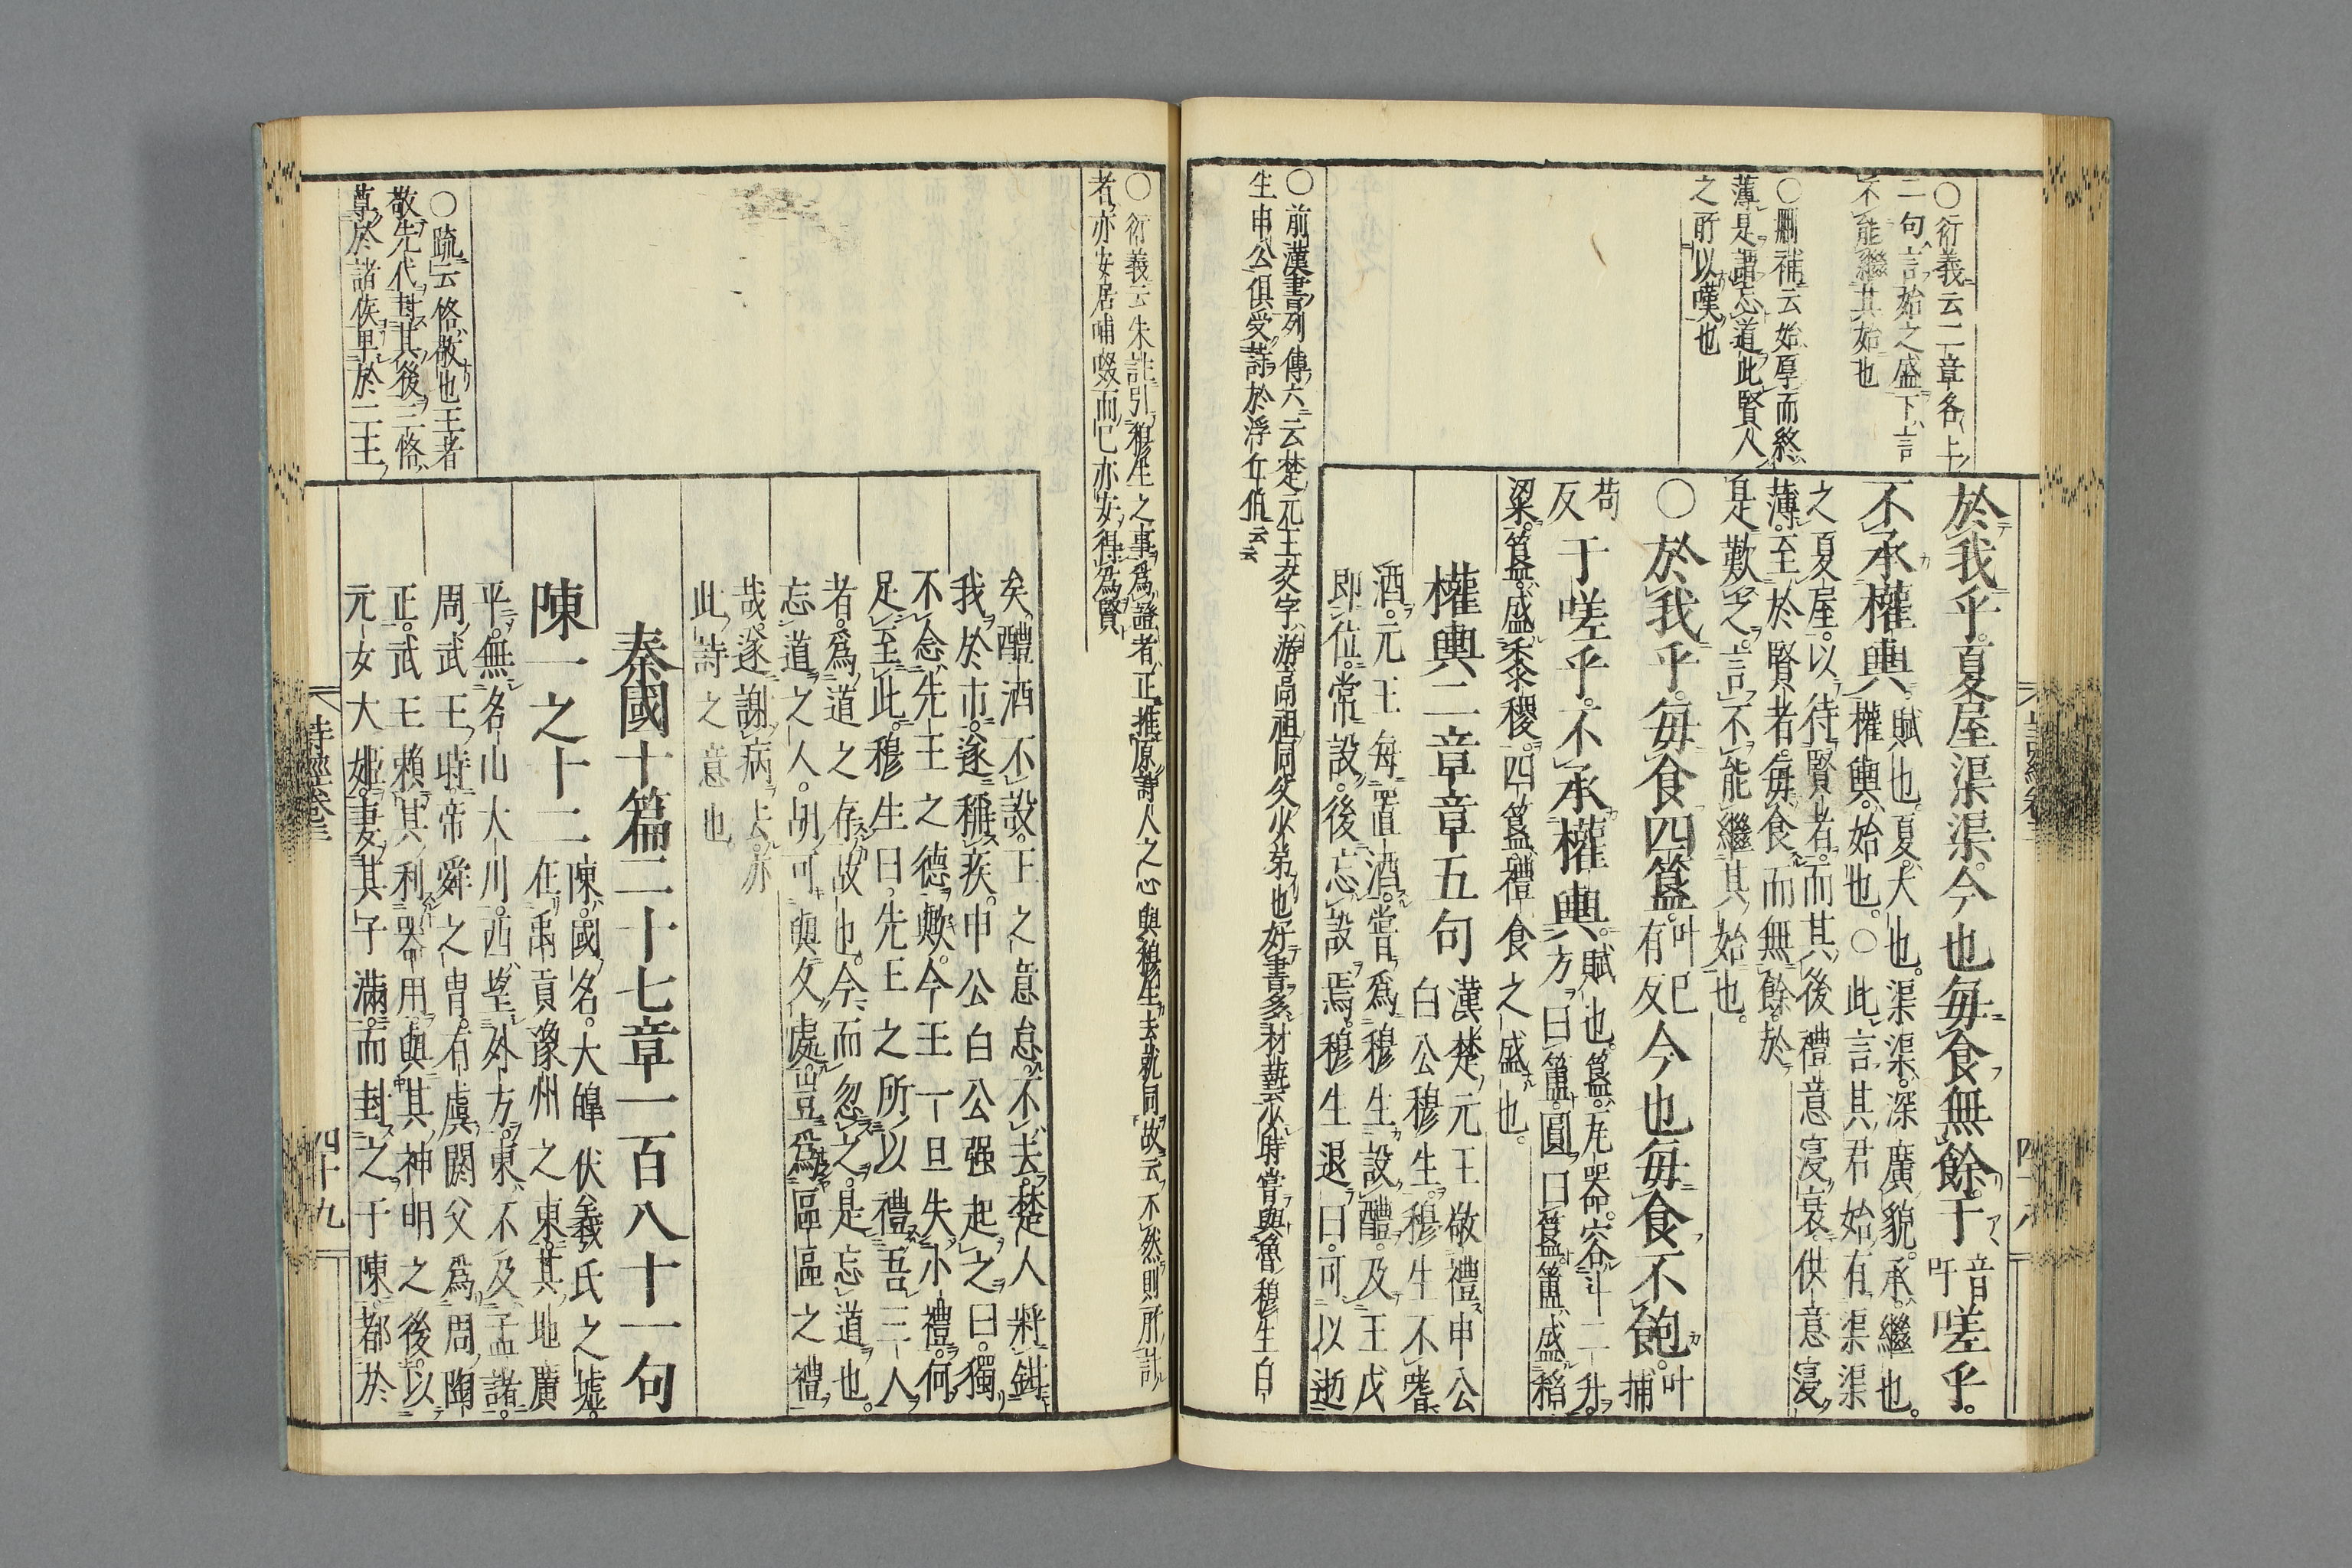 ○衍義云二章各上
二句言始之盛下言
不能繼其始也
○刪補云始厚而終
薄是謂忘道此賢人
之所以嘆也
於我乎夏屋渠渠今也每食無餘于音吁嗟乎
不承權輿賦也夏大也渠渠深廣貌承繼也
權輿始也○此言其君始有渠渠
之夏屋以待賢者而其後禮意寖衰供意寖
薄至於賢者每食而無餘於
是歎之言不能繼其始也
○於我乎每食四簋叶已有反今也每食不飽叶捕
苟反于嗟乎不承權輿賦也簋瓦器容斗二升
方曰簠圓曰簋簠盛稻
粱簋盛黍稷四簋禮食之盛也
權輿二章章五句漢楚元王敬禮申公
白公穆生穆生不嗜
酒元王每置酒嘗爲穆生設醴及王戊
即位常設後忘設焉穆生退曰可以逝
○前漢書列傳六云楚元王交字游高祖同父少弟也好書多材藝少時嘗與魯穆生白
生申公俱受詩於浮丘伯云云
四十八
○衍義云朱註引穆生之事爲證者正推原詩人之心與穆生去就同故云不然則所計
者亦安居哺啜而已亦安得為賢
矣醴酒不設王之意怠不去楚人將鉗
我於市遂稱疾申公白公强起之曰獨
不念先王之德歟今王一旦失小禮何
足至此穆生曰先王之所以禮吾三人
者爲道之存故也今而忽之是忘道也
忘道之人胡可與久處豈爲區區之禮
哉遂謝病去亦
此詩之意也
秦國十篇二十七章一百八十一句
陳一之十二陳國名大皥伏羲氏之墟
在禹貢豫州之東其地廣
平無名山大川西望外方東不及孟諸
周武王時帝舜之冑有虞閼父爲周陶
正武王賴其利器用與其神明之後以
元女大姬妻其子滿而封之于陳都於
○疏云恪敬也王者
敬先代封其後三恪
尊於諸侯卑於二王
詩經卷三
四十九